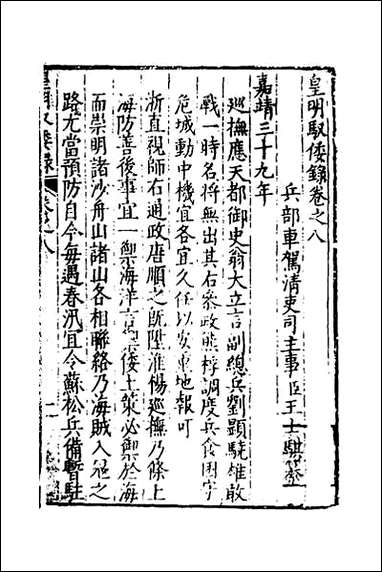 皇明馭倭錄卷之八
兵部車駕清吏司主事臣王士騏
嘉靖三十九年
巡撫應天都御史翁大立言副總兵劉顯驍雄敢
戰一時名將無出其右叅政熊桴調度兵食困守
危城動中機宜各宜久任以安東地報可
浙直視師右通政唐順之旣陞淮楊巡撫乃條上
海防善後事宜一禦海洋言禦倭上策必禦於海
而崇明諸沙舟山諸山各相聯絡乃海賊入冦之
路尤當預防自今每遇春汛宜令蘇松兵備暫駐
皇明馭倭錄 卷之八 一